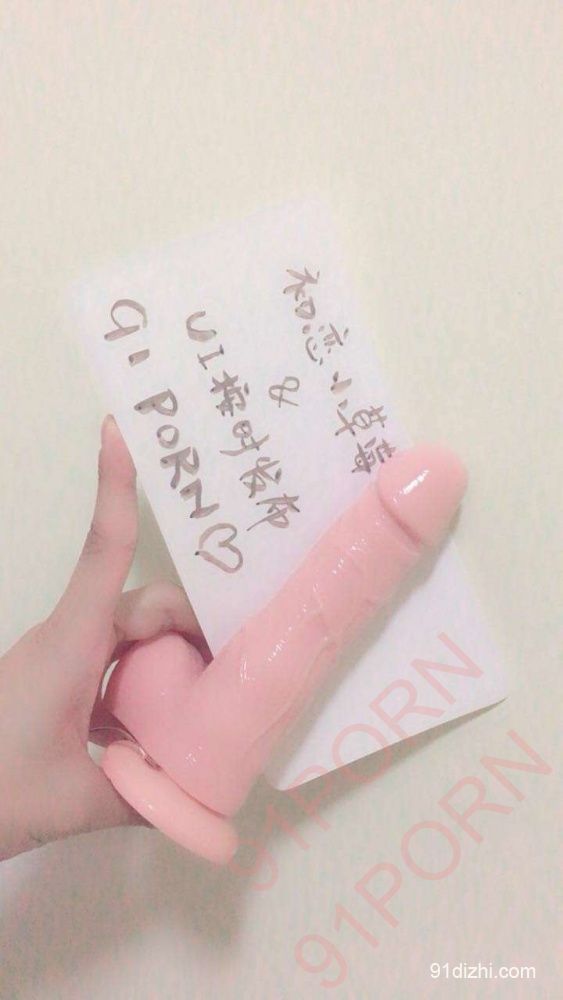 初恋小草莓
&
UI榨时发布
91 PORN♡
91PORN
91PORN
91dizhi.com